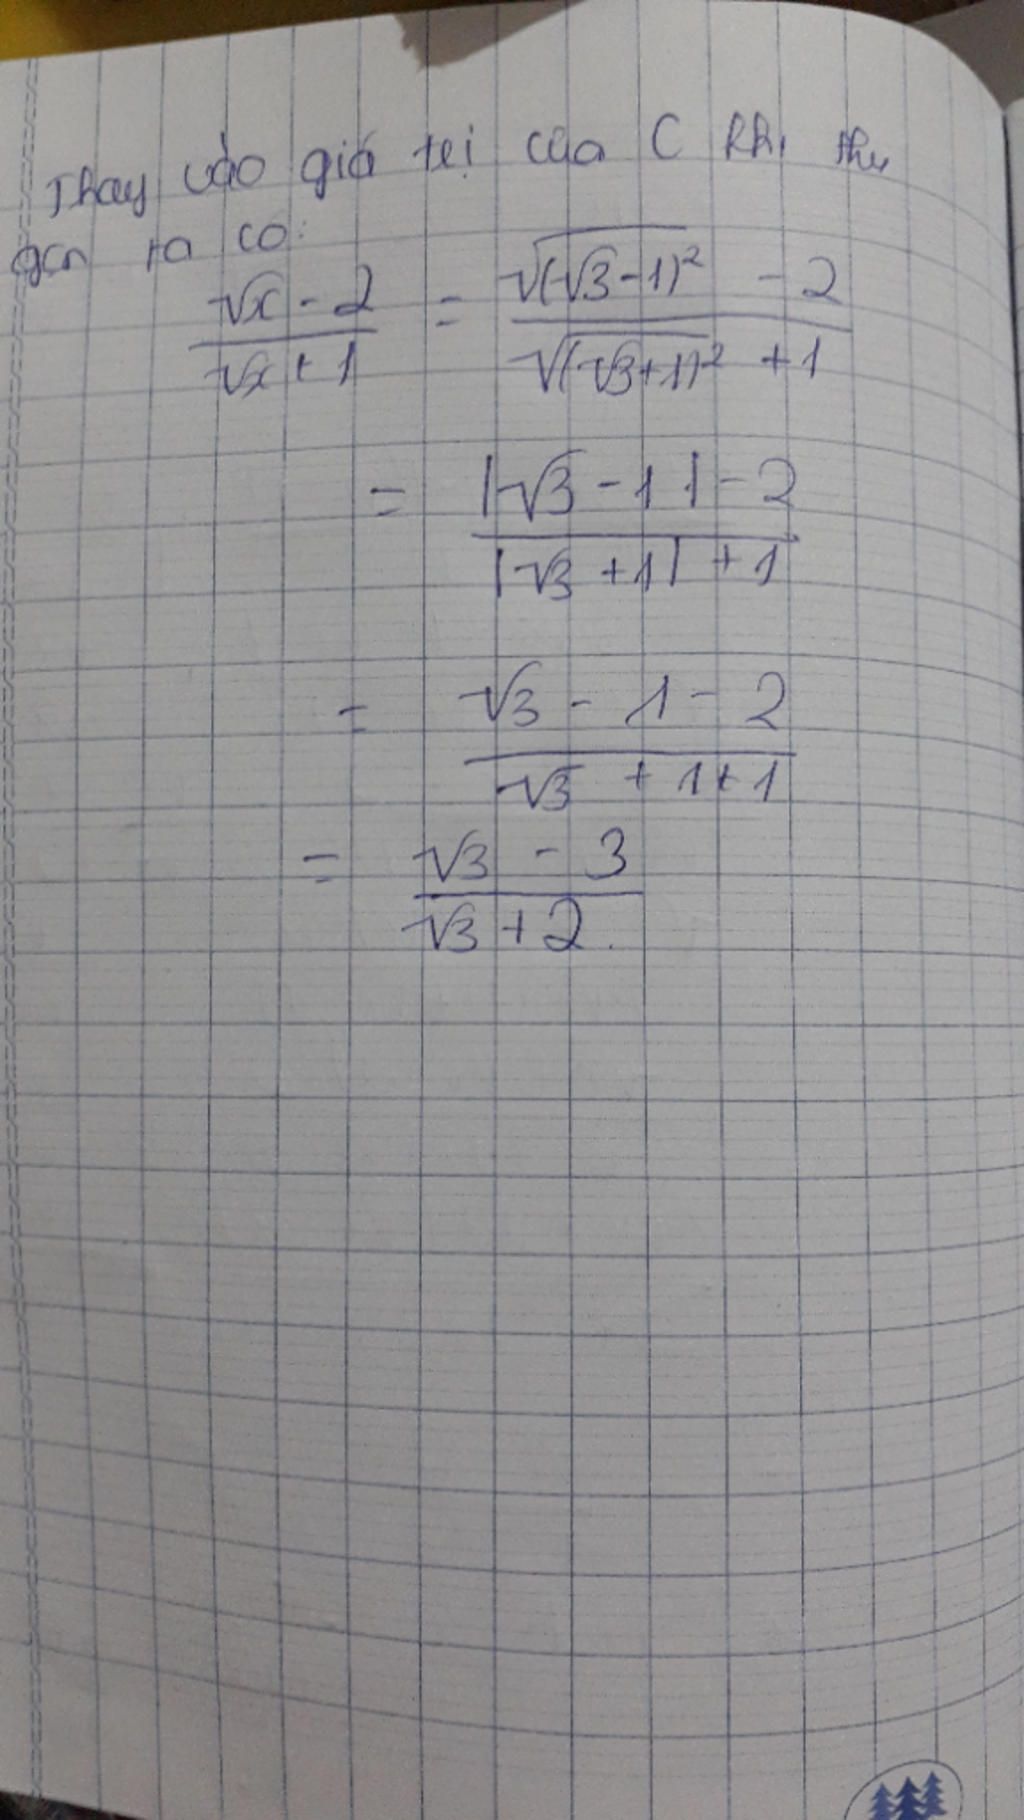 Thay vào giá trị của C khi thu
gọn ta có:
√x - 2 / √x + 1 = √(√3-1)² - 2 / √(√3+1)² + 1
= |√3 - 1| - 2 / |√3 + 1| + 1
= √3 - 1 - 2 / √3 + 1 + 1
= √3 - 3 / √3 + 2.